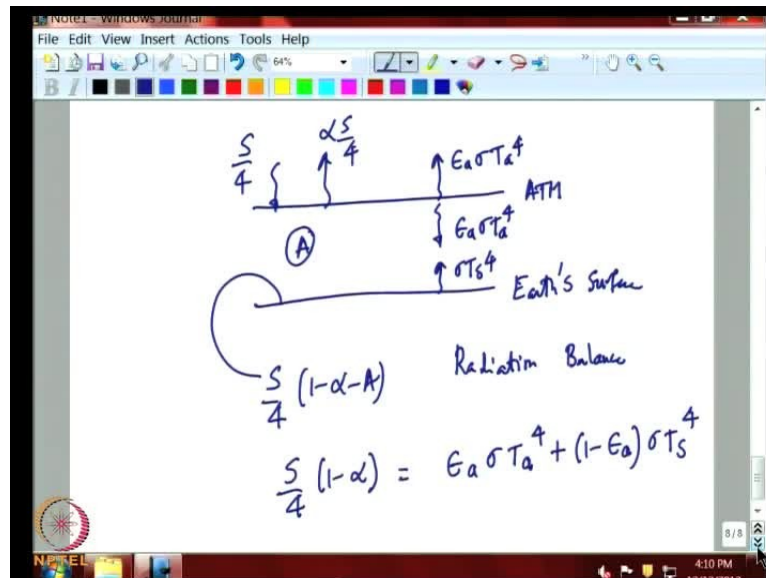 Note1 - Windows Journal
File Edit View Insert Actions Tools Help
64%
B I
S/4 αS/4 ϵₐσTₐ⁴
ATM
A ϵₐσTₐ⁴
σTₛ⁴ Earth's Surface
S/4 (1-α-A) Radiation Balance
S/4 (1-α) = ϵₐσTₐ⁴ + (1-ϵₐ)σTₛ⁴
8/8
NPTEL
4:10 PM